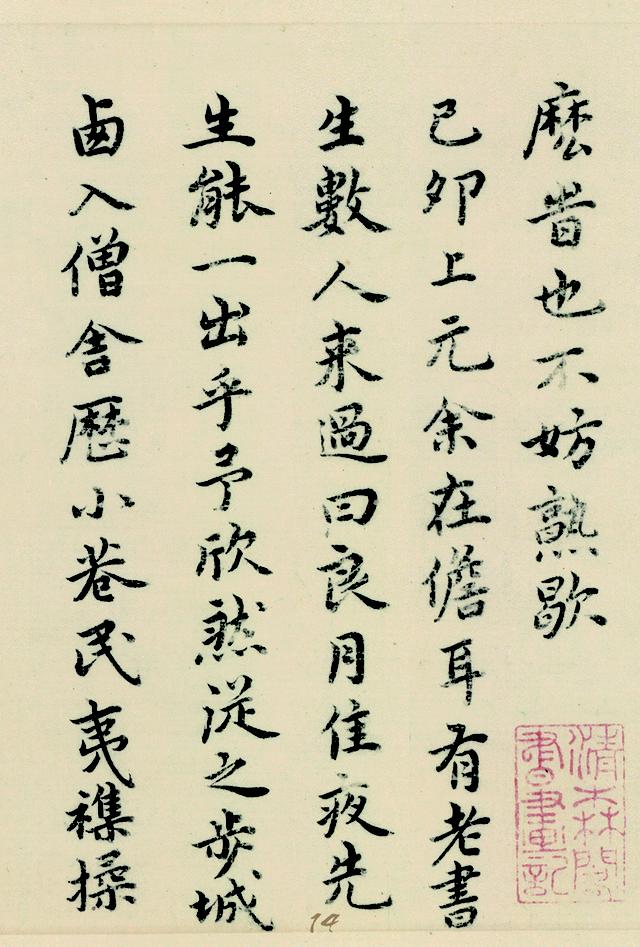 麽旹也不妨熟歇
己卯上元余在儋耳有老書
生數人來過曰良月佳夜先
生能一出乎予欣然從之步城
卥入僧舍歷小巷民夷襍操
清森閣
書畫記
14